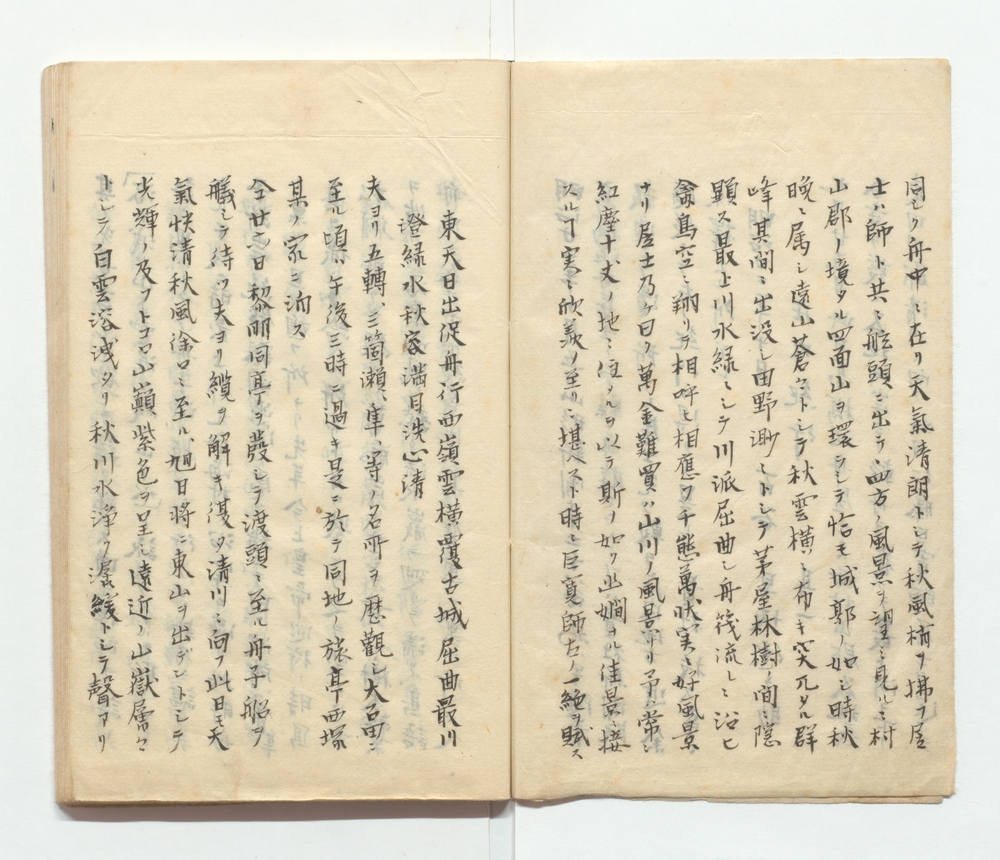 同シク舟中ニ在リ天氣清朗トシテ秋風樯ヲ拂フ居
士ハ師ト共ニ舷頭ニ出テ四方ノ風景ヲ望ミ見ルニ村
山郡ノ境タル四面山ヲ環ラシテ恰モ城郭ノ如シ時秋
晩ニ属シ遠山蒼々トシテ秋雲横ニ布キ突兀タル群
峰其間ニ出没シ田野渺々トシテ茅屋林樹ノ間ニ隠
顕ス最上川水緑ニシテ川派屈曲シ舟筏流レニ沿ヒ
禽鳥空ニ翔リテ相呼ヒ相應ク千態萬状実ニ好風景
ナリ居士乃ケ曰ク萬金難買ハ山川ノ風景ナリ予ハ常ニ
紅塵十丈ノ地ニ住タルヲ以テ斯ノ如ク幽嫺ナル佳景ニ接
スルヿ実ニ欣羨ノ至リニ堪ヘスト時ニ巨寛師左ノ一絶ヲ賦ス
東天日出促舟行西嶺雲横覆古城屈曲最川
澄緑水秋容満目洗心清
夫ヨリ五轉、三箇瀬、隼、等ノ名所ヲ歴觀シ大石田ニ
至ル頃ハ午後三時ニ過キ是ニ於テ同地ノ旅亭西塚
某ノ家ニ泊ス
仝廿六日黎明同亭ヲ發シテ渡頭ニ至ル舟子船ヲ
艤シテ待ツ夫ヨリ纜ヲ解キ復タ清川ニ向フ此日モ天
氣快清秋風徐ロニ至ル、旭日將ニ東山ヲ出デントシテ
光輝ノ及フトコロ山巓紫色ヲ呈シ遠近ノ山嶽層々
トシテ白雲溶洩タリ秋川水浄ク潺緩トシテ聲アリ